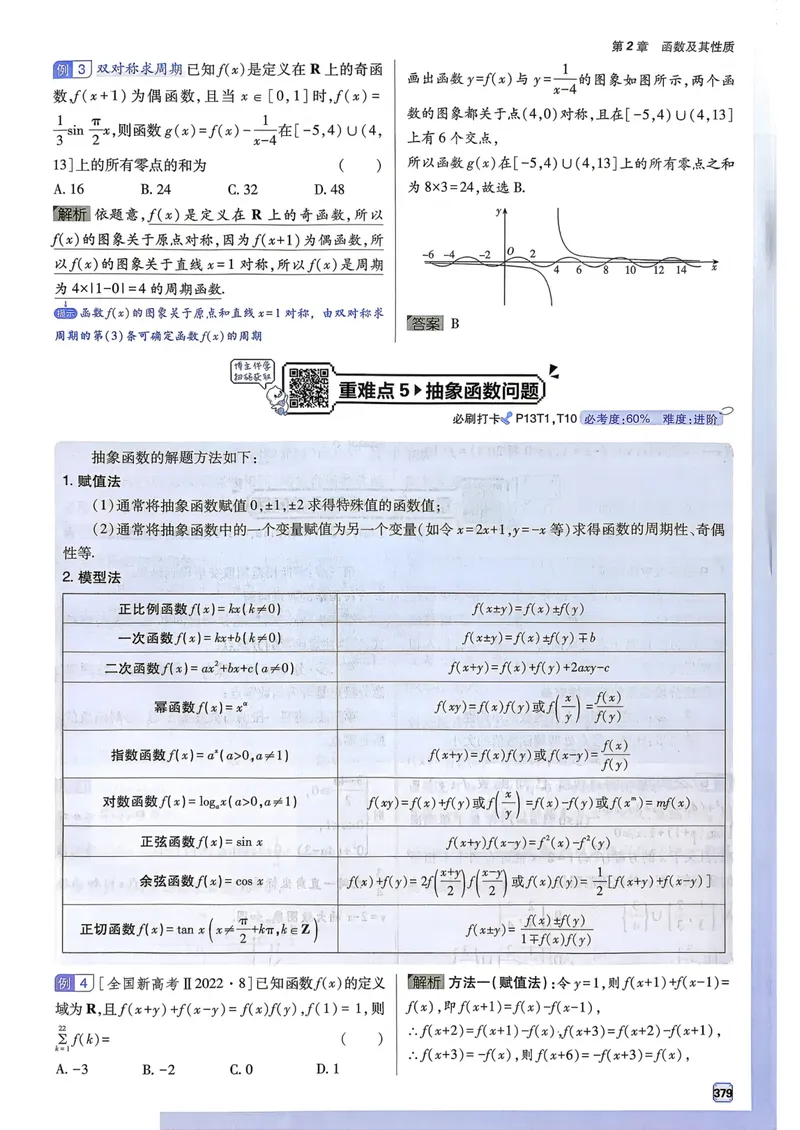 第2章 函数及其性质
例 3 双对称求周期 已知 f(x)是定义在 R 上的奇函
数,f(x+1)为偶函数,且当 x∈[0,1]时,f(x)=
1/3 sin π/2 x,则函数 g(x)=f(x)-1/(x-4)在[-5,4)∪(4,
13]上的所有零点的和为 ( )
A. 16 B. 24 C. 32 D. 48
解析 依题意,f(x)是定义在 R 上的奇函数,所以
f(x)的图象关于原点对称,因为 f(x+1)为偶函数,所
以 f(x)的图象关于直线 x=1 对称,所以 f(x)是周期
为 4×|1-0|=4 的周期函数.
提示 函数 f(x)的图象关于原点和直线 x=1 对称,由双对称求
周期的第(3)条可确定函数 f(x)的周期
画出函数 y=f(x)与 y=1/(x-4)的图象如图所示,两个函
数的图象都关于点(4,0)对称,且在[-5,4)∪(4,13]
上有 6 个交点,
所以函数 g(x)在[-5,4)∪(4,13]上的所有零点之和
为 8×3=24,故选 B.
y
-6 -4 -2 O 2 4 6 8 10 12 14 x
答案 B
博主伴学
扫码获取
重难点 5 ▶ 抽象函数问题
必刷打卡 P13T1,T10 必考度:60% 难度:进阶
抽象函数的解题方法如下:
1. 赋值法
(1)通常将抽象函数赋值 0,±1,±2 求得特殊值的函数值;
(2)通常将抽象函数中的一个变量赋值为另一个变量(如令 x=2x+1,y=-x 等)求得函数的周期性、奇偶
性等.
2. 模型法
正比例函数 f(x)=kx(k≠0) f(x±y)=f(x)±f(y)
一次函数 f(x)=kx+b(k≠0) f(x±y)=f(x)±f(y)∓b
二次函数 f(x)=ax²+bx+c(a≠0) f(x+y)=f(x)+f(y)+2axy-c
幂函数 f(x)=xᵅ f(xy)=f(x)f(y)或 f(x/y)=f(x)/f(y)
指数函数 f(x)=aˣ(a>0,a≠1) f(x+y)=f(x)f(y)或 f(x-y)=f(x)/f(y)
对数函数 f(x)=logₐx(a>0,a≠1) f(xy)=f(x)+f(y)或 f(x/y)=f(x)-f(y)或 f(xᵐ)=mf(x)
正弦函数 f(x)=sin x f(x+y)f(x-y)=f²(x)-f²(y)
余弦函数 f(x)=cos x f(x)+f(y)=2f((x+y)/2)f((x-y)/2)或 f(x)f(y)=1/2[f(x+y)+f(x-y)]
正切函数 f(x)=tan x(x≠π/2+kπ,k∈Z) f(x±y)=(f(x)±f(y))/(1∓f(x)f(y))
例 4 [全国新高考Ⅱ2022·8]已知函数 f(x)的定义
域为 R,且 f(x+y)+f(x-y)=f(x)f(y),f(1)=1,则
∑(k=1→22) f(k)= ( )
A. -3 B. -2 C. 0 D. 1
解析 方法一(赋值法):令 y=1,则 f(x+1)+f(x-1)=
f(x),即 f(x+1)=f(x)-f(x-1),
∴f(x+2)=f(x+1)-f(x),f(x+3)=f(x+2)-f(x+1),
∴f(x+3)=-f(x),则 f(x+6)=-f(x+3)=f(x),
379